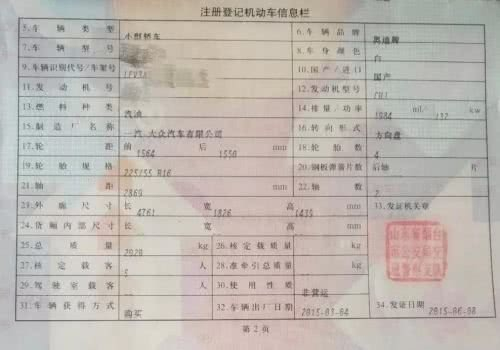 注册登记机动车信息栏
5.车辆类型 小型轿车 6.车辆品牌 奥迪牌
7.车辆型号 8.车身颜色 白
9.车辆识别代号/车架号 LFV3A 10.国产/进口 国产
11.发动机号 12.发动机型号 CUJ
13.燃料种类 汽油 14.排量/功率 1984 ml/ 132 kw
15.制造厂名称 一汽-大众汽车有限公司 16.转向形式 方向盘
17.轮距 前 1564 后 1550 mm 18.轮胎数 4
19.轮胎规格 225/55 R16 20.钢板弹簧片数 后轴 片
21.轴距 2869 mm 22.轴数 2
23.外廓尺寸 长 4761 宽 1826 高 1439 mm 33.发证机关章
24.货厢内部尺寸 长 宽 高 mm
25.总质量 kg 26.核定载质量 kg
27.核定载客 5 人 28.准牵引总质量 kg
29.驾驶室载客 人 30.使用性质 非营运
31.车辆获得方式 购买 32.车辆出厂日期 2015-03-04 34.发证日期 2015-06-08
第2页